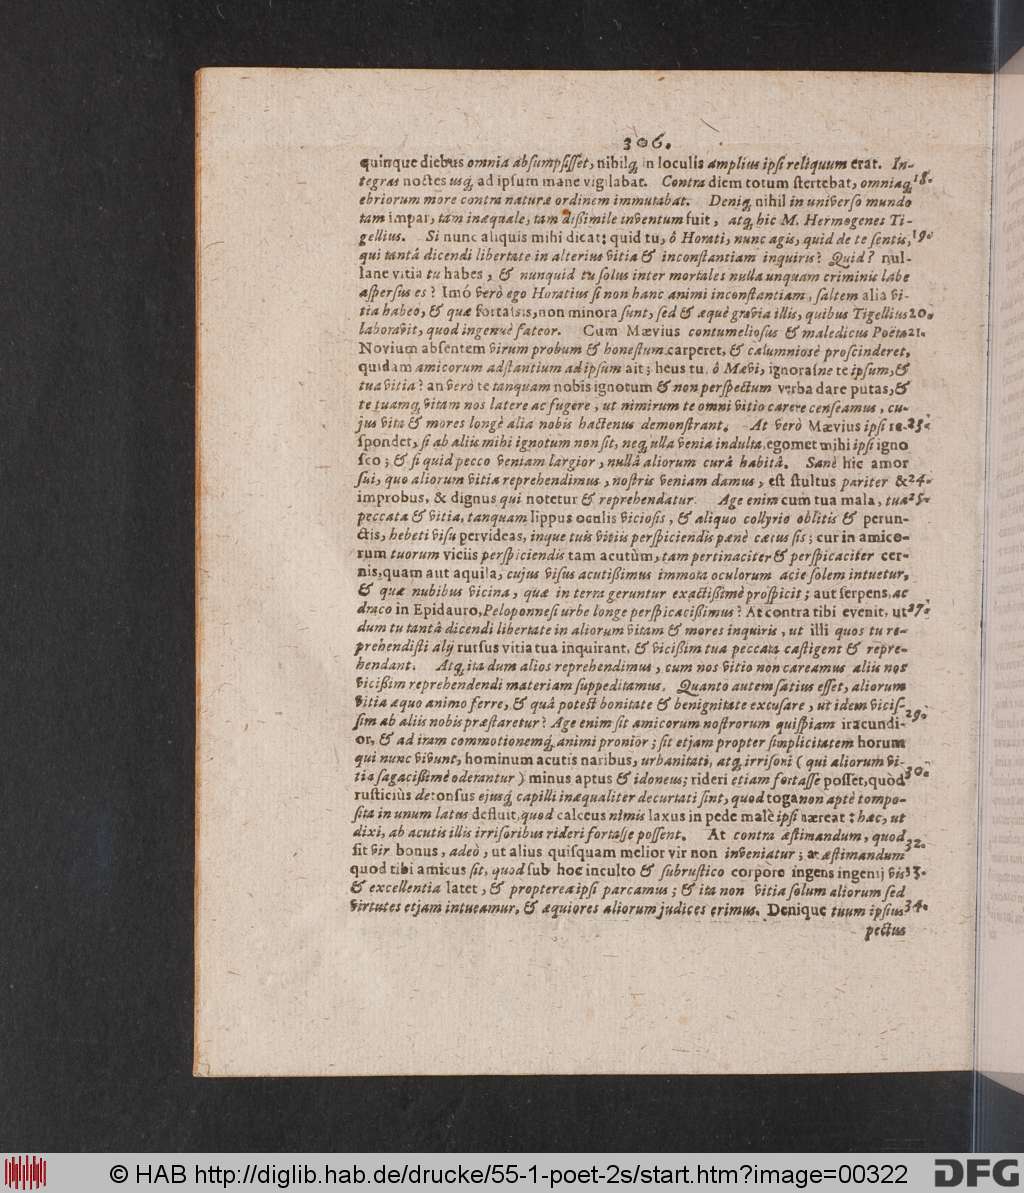 306.
quinque diebus omnia absumpsisset, nihilq́ in loculis amplius ipsi reliquum erat. In-
tegras noctes usq́ ad ipsum mane vigilabat. Contra diem totum stertebat, omniaq́ 18.
ebriorum more contra naturæ ordinem immutabat. Deniq́ nihil in universo mundo
tam impar, tàm inæquale, tam dißimile inventum fuit, atq́ hic M. Hermogenes Ti-
gellius. Si nunc aliquis mihi dicat: quid tu, ô Horati, nunc agis, quid de te sentis, 19.
qui tantâ dicendi libertate in alterius vitia & inconstantiam inquiris? Quid? nul-
lane vitia tu habes, & nunquid tu solus inter mortales nulla unquam criminis labe
aspersus es? Imò verò ego Horatius si non hanc animi inconstantiam, saltem alia vi-
tia habeo, & quæ fortassis, non minora sunt, sed & æquè gravia illis, quibus Tigellius 20.
laboravit, quod ingenuè fateor. Cum Mævius contumeliosus & maledicus Poëta 21.
Novium absentem virum probum & honestum carperet, & calumniosè proscinderet,
quidam amicorum adstantium ad ipsum ait; heus tu, ô Mævi, ignorasne te ipsum, &
tua vitia? an verò te tanquam nobis ignotum & non perspectum verba dare putas, &
te tuamq́ vitam nos latere ac fugere, ut nimirum te omni vitio carere censeamus, cu-
jus vita & mores longè alia nobis hactenus demonstrant. At verò Mævius ipsi re- 23.
spondet, si ab aliis mihi ignotum non sit, neq́ ulla venia indulta, egomet mihi ipsi igno
sco; & si quid pecco veniam largior, nullâ aliorum curâ habitâ. Sanè hic amor
sui, quo aliorum vitia reprehendimus, nostris veniam damus, est stultus pariter & 24.
improbus, & dignus qui notetur & reprehendatur. Age enim cum tua mala, tua 25.
peccata & vitia, tanquam lippus oculis viciosis, & aliquo collyrio oblitis & perun-
ctis, hebeti visu pervideas, inque tuis vitiis perspiciendis pænè cæcus sis; cur in amico-
rum tuorum viciis perspiciendis tam acutùm, tam pertinaciter & perspicaciter cer-
nis, quam aut aquila, cujus visus acutißimus immota oculorum acie solem intuetur,
& quæ nubibus vicina, quæ in terra geruntur exactißimè prospicit; aut serpens, ac
draco in Epidauro, Peloponnesi urbe longe perspicacißimus? At contra tibi evenit, ut 27.
dum tu tantâ dicendi libertate in aliorum vitam & mores inquiris, ut illi quos tu re-
prehendisti alij rursus vitia tua inquirant, & vicißim tua peccata castigent & repre-
hendant. Atq́ ita dum alios reprehendimus, cum nos vitio non careamus aliis nos
vicißim reprehendendi materiam suppeditamus. Quanto autem satius esset, aliorum
vitia æquo animo ferre, & quâ potest bonitate & benignitate excusare, ut idem vicis-
sim ab aliis nobis præstaretur? Age enim sit amicorum nostrorum quispiam iracundi- 29.
or, & ad iram commotionemq́ animi pronior; sit etjam propter simplicitatem horum
qui nunc vivunt, hominum acutis naribus, urbanitati, atq́ irrisoni (qui aliorum vi-
tia sagacißimè oderantur) minus aptus & idoneus; rideri etiam fortasse posset, quòd 30.
rusticiùs detonsus ejusq́ capilli inæqualiter decurtati sint, quod toga non aptè compo-
sita in unum latus defluit, quod calceus nimis laxus in pede malè ipsi hæreat: hæc, ut
dixi, ab acutis illis irrisoribus rideri fortasse possent. At contra æstimandum, quod
sit vir bonus, adeò, ut alius quisquam melior vir non inveniatur; at æstimandum 32.
quod tibi amicus sit, quod sub hoc inculto & subrustico corpore ingens ingenij vis 33.
& excellentia latet, & propterea ipsi parcamus; & ita non vitia solum aliorum sed
virtutes etjam intueamur, & æquiores aliorum judices erimus. Denique tuum ipsius 34.
pectus
© HAB http://diglib.hab.de/drucke/55-1-poet-2s/start.htm?image=00322
DFG